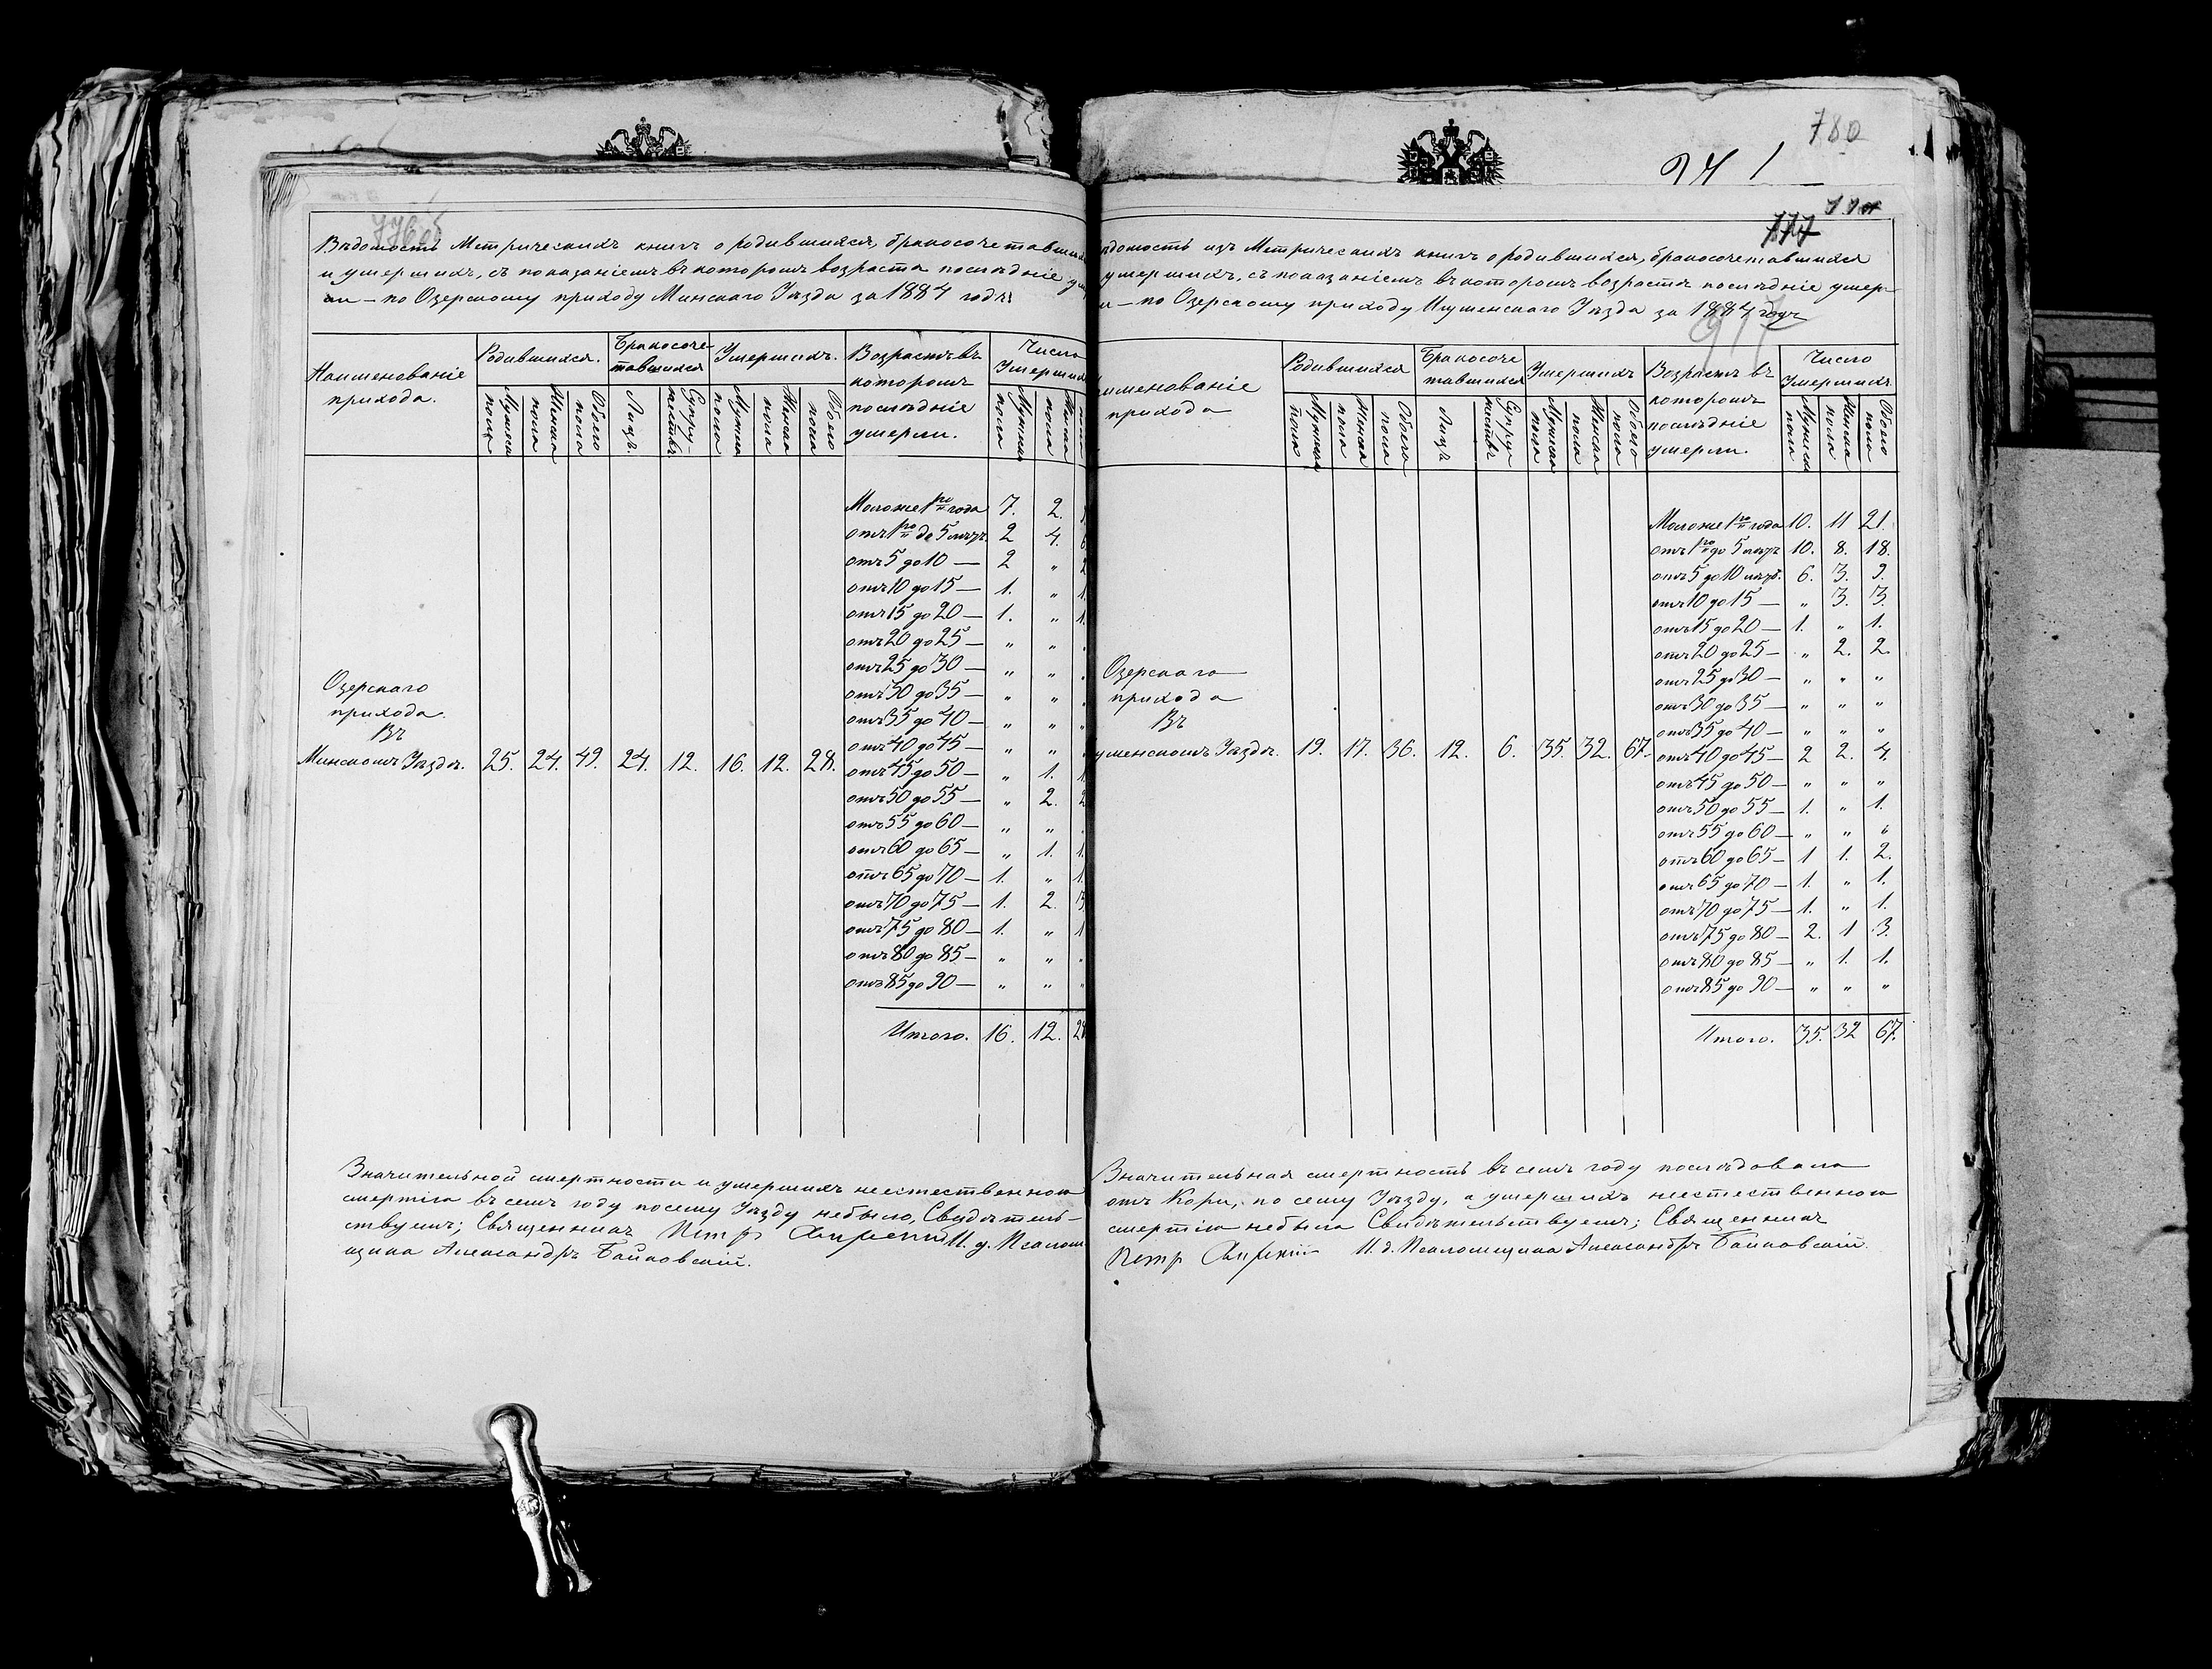 776об
Вѣдомость Метрическихъ книгъ о родившихся, бракосочетавших
и умершихъ, съ показаніемъ въ которомъ возрастѣ послѣдніе ум
ли – по Озерскому приходу Минскаго Уѣзда за 1884 годъ
Наименованіе прихода.
Родившихся.
Бракосоче-
тавшихся
Умершихъ.
Возрастъ въ
которомъ
послѣдніе
умерли.
Число
Умерших
Мужеска пола
Женска пола
Обоего пола
Лицъ.
Супру-
жествъ
Мужска пола
Женска пола
Обоего пола
Мужска пола
Женска пола
Моложе 1го года 7. 2.
отъ 1го до 5 лѣтъ 2 4. 6
отъ 5 до 10 — 2 „ 2
отъ 10 до 15 — 1. „ 1.
отъ 15 до 20 — 1. „ 1.
отъ 20 до 25 — „ „
отъ 25 до 30 — „ „
отъ 30 до 35 — „ „
отъ 35 до 40 — „ „ „
отъ 40 до 45 — „ „
отъ 45 до 50 — „ 1. 1
отъ 50 до 55 — „ 2. 2
отъ 55 до 60 — „ „
отъ 60 до 65 — „ 1. 1.
отъ 65 до 70 — 1. „ 1.
отъ 70 до 75 — 1. 2. 3
отъ 75 до 80 — 1. „ 1
отъ 80 до 85 — „ „ „
отъ 85 до 90 — „ „ „
Озерскаго
прихода.
Въ
Минскомъ Уѣздѣ. 25. 24. 49. 24. 12. 16. 12. 28.
Итого. 16. 12. 28
Значительной смертности и умершихъ неестественною
смертію въ семъ году по сему Уѣзду небыло, Свидѣтель-
ствуемъ; Священникъ Петръ И. д. Псалом
щика Александръ Байковскій.
780
941
777
домость изъ Метрическихъ книгъ о родившихся, бракосочетавшихся
умершихъ, съ показаніемъ въ которомъ возрастѣ послѣдніе умер-
и – по Озерскому приходу Игуменскаго Уѣзда за 1884 годъ
именованіе
прихода
Родившихся
Бракосоче
тавшихся
Умершихъ
Возрастъ въ
которомъ
послѣдніе
умерли.
Число
Умершихъ
Мужска пола
Женска пола
Обоего пола
Лицъ
Супру
жествъ
Мужска пола
Женска пола
Обоего пола
Мужска пола
Женска пола
Обоего пола
Моложе 1го года 10. 11 21.
отъ 1го до 5 лѣтъ 10. 8. 18.
отъ 5 до 10 лѣтъ. 6. 3. 9.
отъ 10 до 15 — „ 3. 3.
отъ 15 до 20 — 1. „ 1.
отъ 20 до 25 — „ 2. 2.
отъ 25 до 30 — „ „ „
отъ 30 до 35 — „ „ „
отъ 35 до 40 — „ „ „
отъ 40 до 45 — 2 2. 4.
отъ 45 до 50 — „ „ „
отъ 50 до 55 — 1. „ 1.
отъ 55 до 60 — „ „ „
отъ 60 до 65 — 1 1. 2.
отъ 65 до 70 — 1. „ 1.
отъ 70 до 75 — 1. „ 1.
отъ 75 до 80 — 2. 1 3.
отъ 80 до 85 — „ 1. 1.
отъ 85 до 90 — „ „ „
Озерскаго
прихода
Въ
уменскомъ Уѣздѣ. 19. 17. 36. 12. 6. 35. 32. 67.
Итого. 35. 32 67.
Значительная смертность въ семъ году послѣдовала
отъ Кори, по сему Уѣзду, а умершихъ неестественною
смертію небыло Свидѣтельствуемъ; Священникъ
Петръ И. д. Псаломщика Александръ Байковскій.